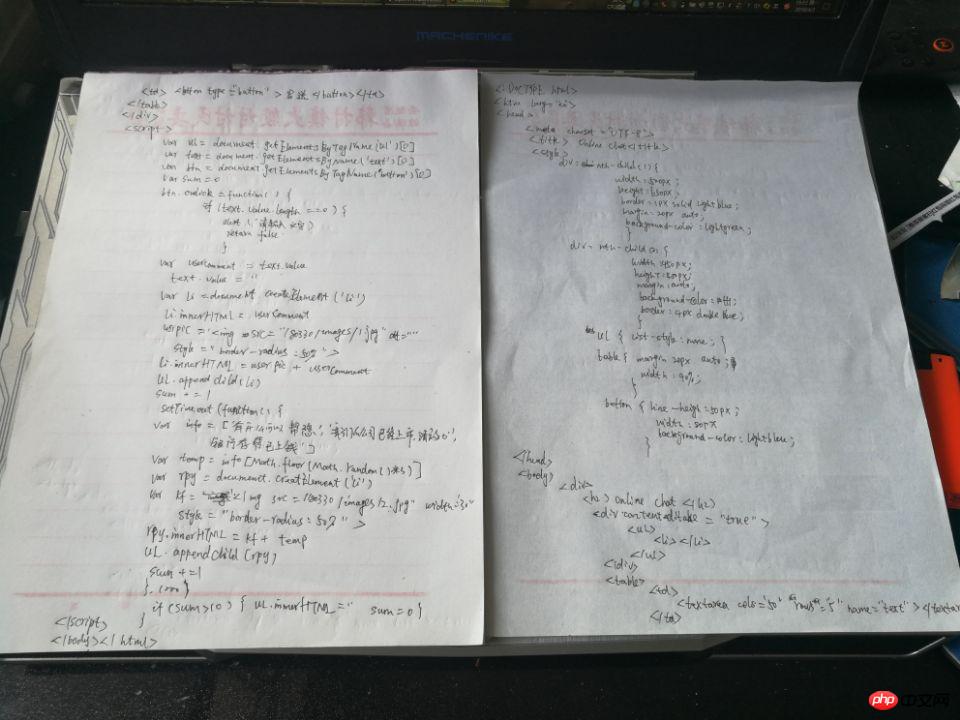 MACHENIKE
<!DOCTYPE html>
<html lang="en">
<head>
<meta charset="UTF-8">
<title> Online chat </title>
<style>
div:nth-child(1) {
width:500px;
height:650px;
border:1px solid lightblue;
margin:20px auto;
background-color:lightgreen;
}
div:nth-child(2) {
width:450px;
height:500px;
margin:auto;
background-color:
border:4px double blue;
}
ul { list-style:none; }
table { margin 20px auto;
width:90%;
}
button { line-height:50px;
width:50px
background-color:lightblue;
}
</head>
<body>
<div>
<h2> online chat </h2>
<div contenteditable = "true">
<ul>
<li></li>
</ul>
</div>
<table>
<td>
<textarea cols="50" "rows"="5" name="text"></textar
</td>
<td> <button type="button"> 发送 </button></td>
</table>
</div>
<script>
var ul = document.getElementsByTagName('ul')[0]
var text = document.getElementsByName('text')[0]
var btn = document.getElementsByTagName('button')[0]
var sum=0
btn.onclick = function() {
if (text.value.length ===0) {
alert
return false
}
var userComment = text.value
text.value = ''
var li = document createElement('li')
li.innerHTML = userComment
userpic = '<img src="/0330/images/1.jpg"
style = "border-radius:50%">
li.innerHTML = userpic + userComment
ul.appendChild(li)
sum += 1
setTimeout(function() {
var info = [
var temp = info[Math.floor(Math.random()*3)]
var rpy = document.createElement('li')
var kf = <img src = /0330/images/2.jpg" width='30"
style = "border-radius:50%" >
rpy.innerHTML = kf + temp
ul.appendChild(rpy)
sum +=1
if (sum>10) { ul.innerHTML='' sum=0 }
</script> }
</body></html>
php 中文网